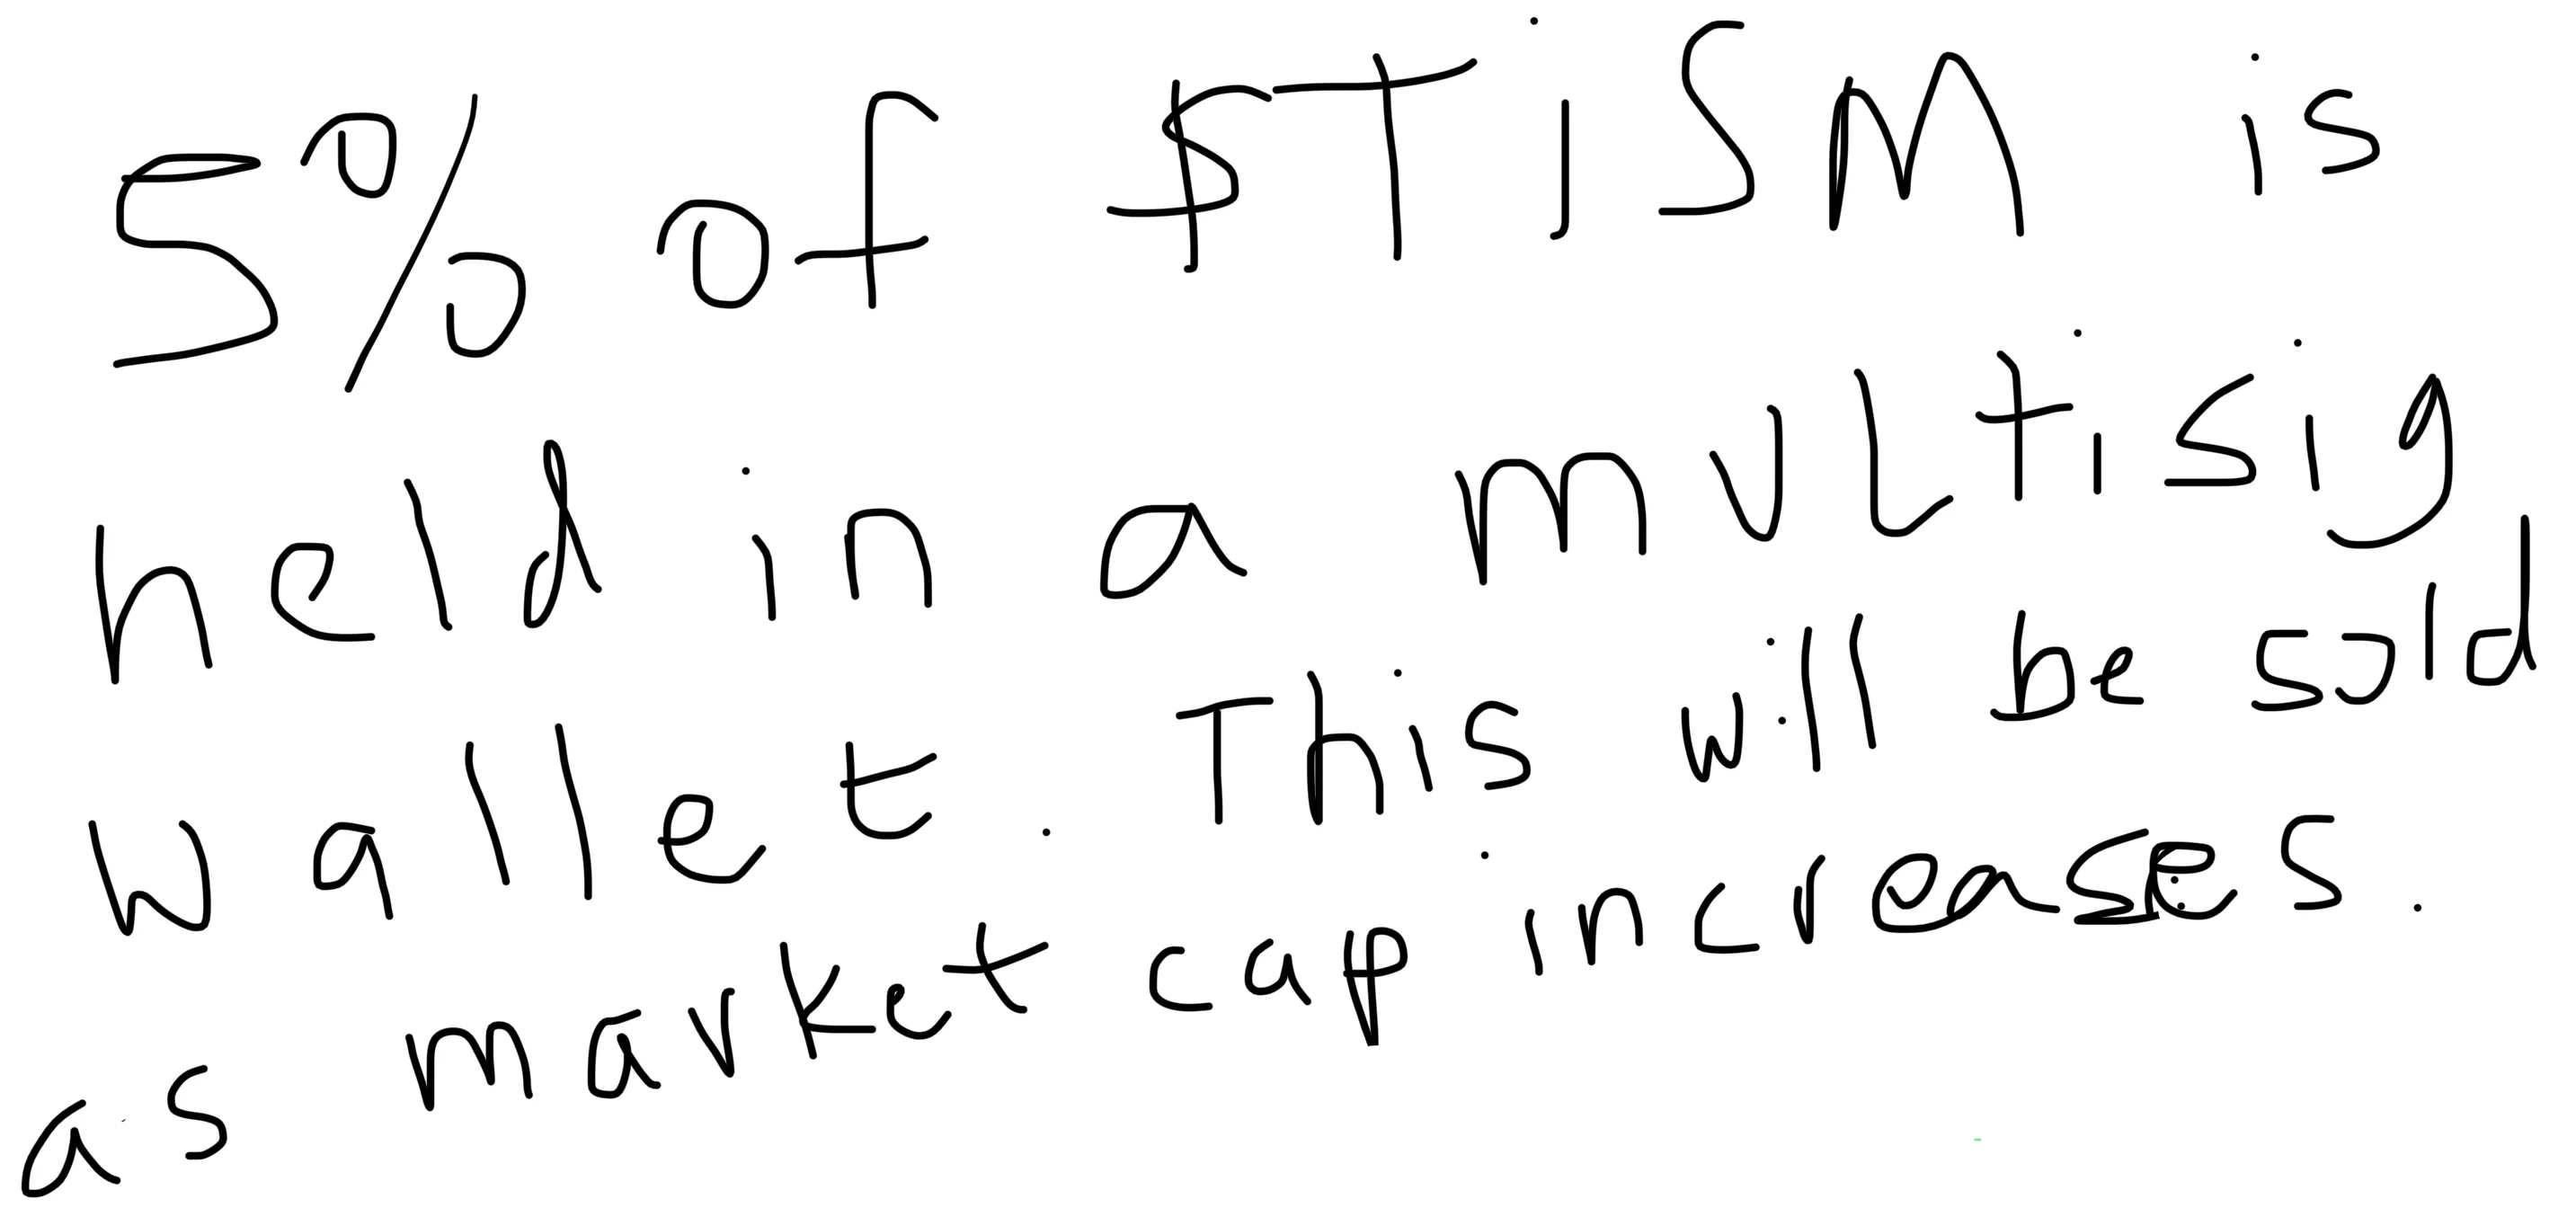 5% of $TiSM is
held in a multisig
wallet. This will be sold
as market cap increases.